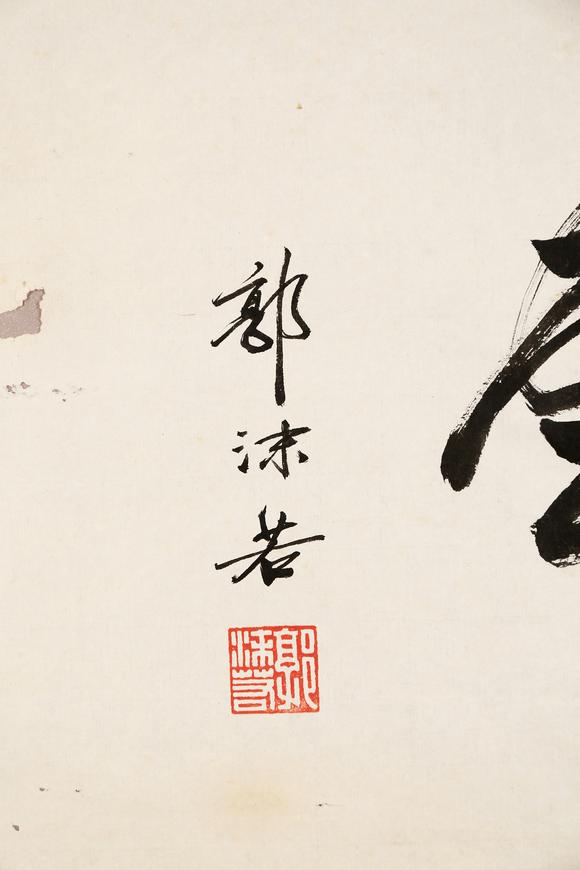 郭沫若
郭沫若